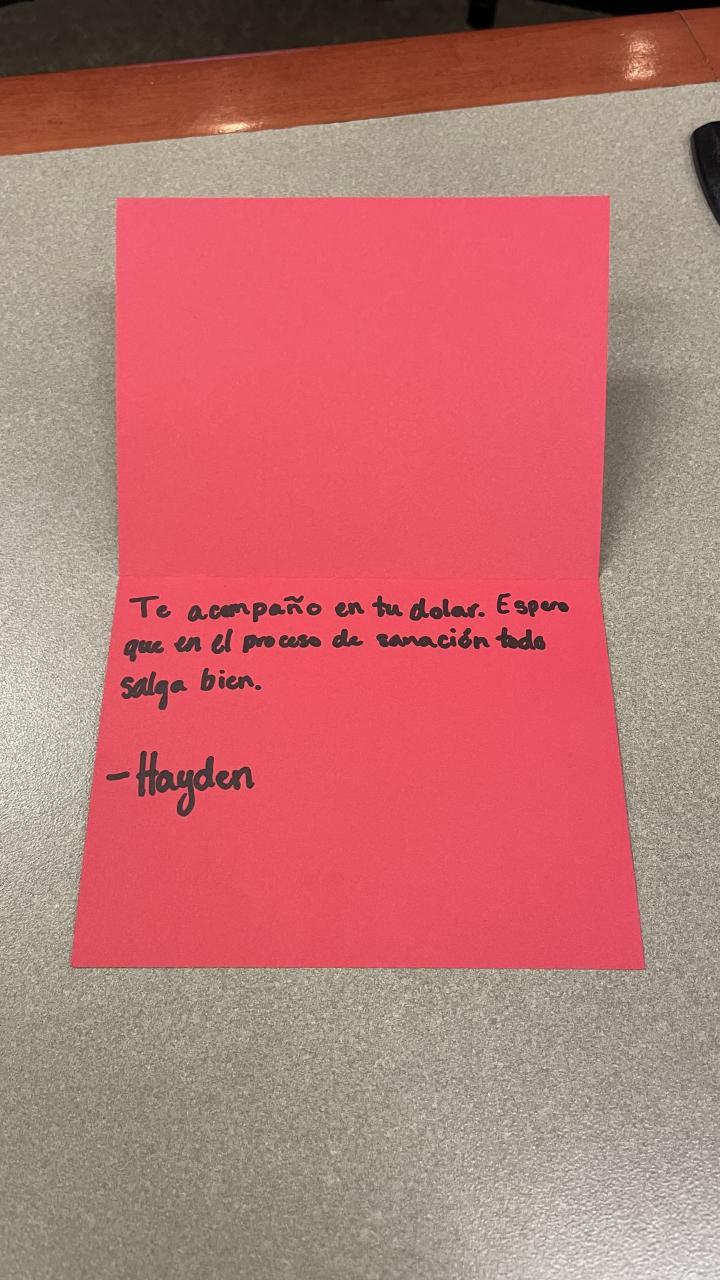 Te acompaño en tu dolar. Espero
que en el proceso de sanación todo
salga bien.
-Hayden